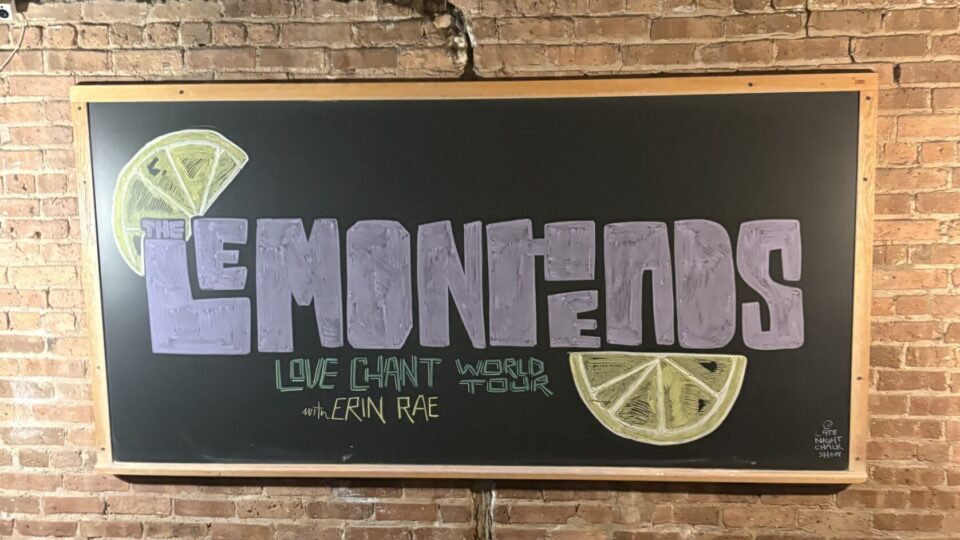 THE LEMONHEADS
LOVE CHANT WORLD TOUR
with ERIN RAE
@
LATE
NIGHT
CHALK
SHOW